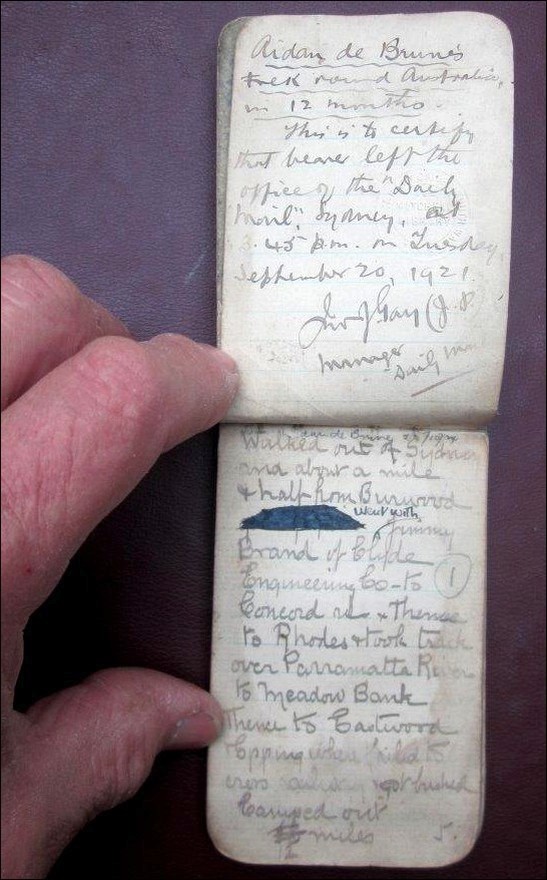 Aidan de Brune's
trek round Australia,
in 12 months.
This is to certify
that bearer left the
office of the "Daily
Mail", Sydney, at
3.45 p.m. on Tuesday
September 20, 1921.
Gay J.P.
Manager
Daily Mail
Walked out of Sydney
and about a mile
& half from Burwood
went with
Jimmy
Brand of Clyde
Engineering Co - to
Concord rd & Thence
to Rhodes & took track
over Parramatta River
to Meadow Bank
Thence to Eastwood
Epping when failed to
cross railway got bushed
Camped out
miles 5.
12
1